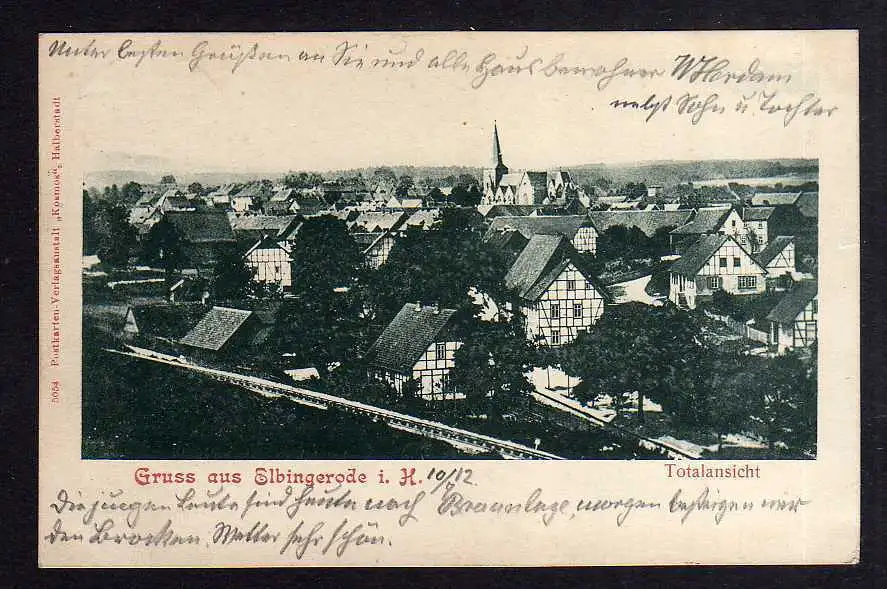 Unter besten Grüßen an Sie und alle Hausbewohner
nebst Sohn u Tochter
5054 Postkarten-Verlagsanstalt „Kosmos“, Halberstadt
Gruss aus Elbingerode i. H. 10/12
Totalansicht
Die jungen Leute sind heute nach Braunlage, morgen besteigen wir
den Brocken. Wetter sehr schön.